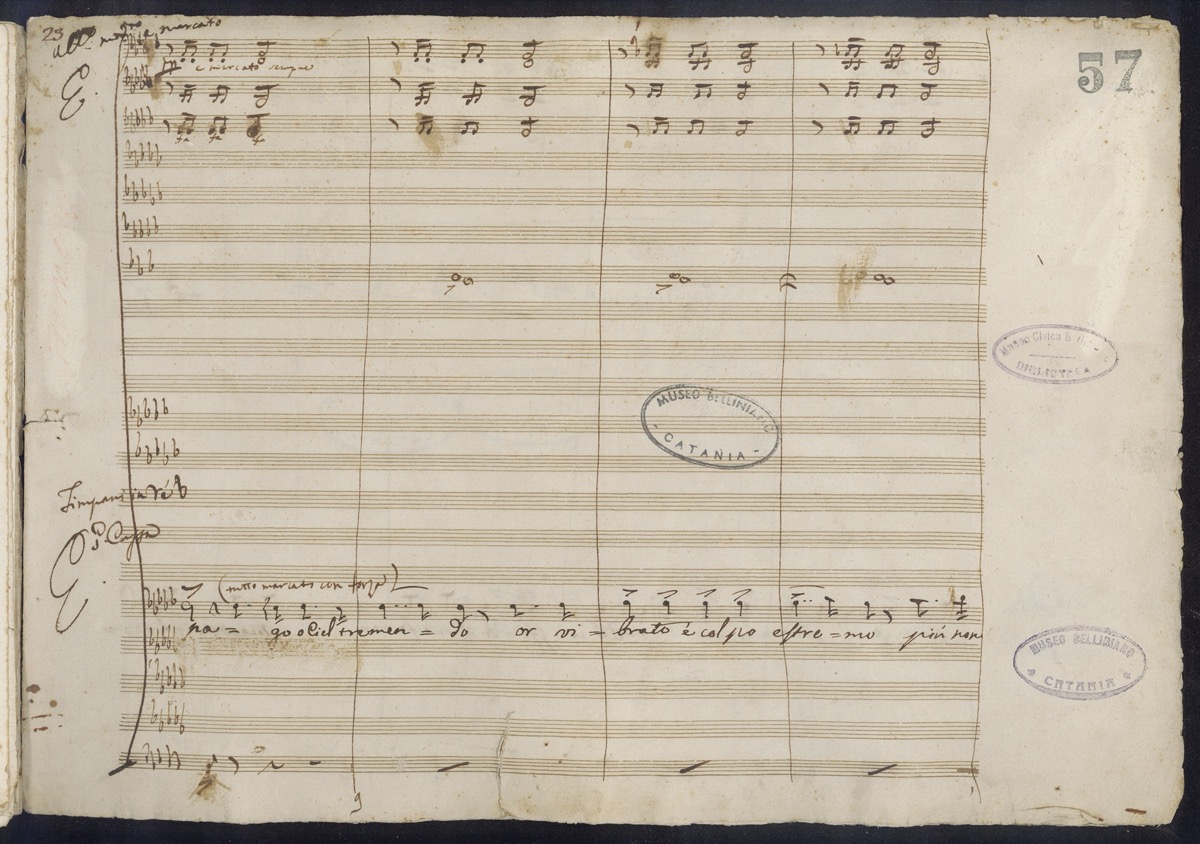 23
marcato
57
e marcato sempre
MUSEO BELLINIANO
- CATANIA -
Museo Civico B
BIBLIOTECA
Timpani in Re b
Cassa
(tutto marcato con forza)
pa= go o Ciel tremen= do or vi= brato è colpo estre=mo più non
MUSEO BELLINIANO
CATANIA
9